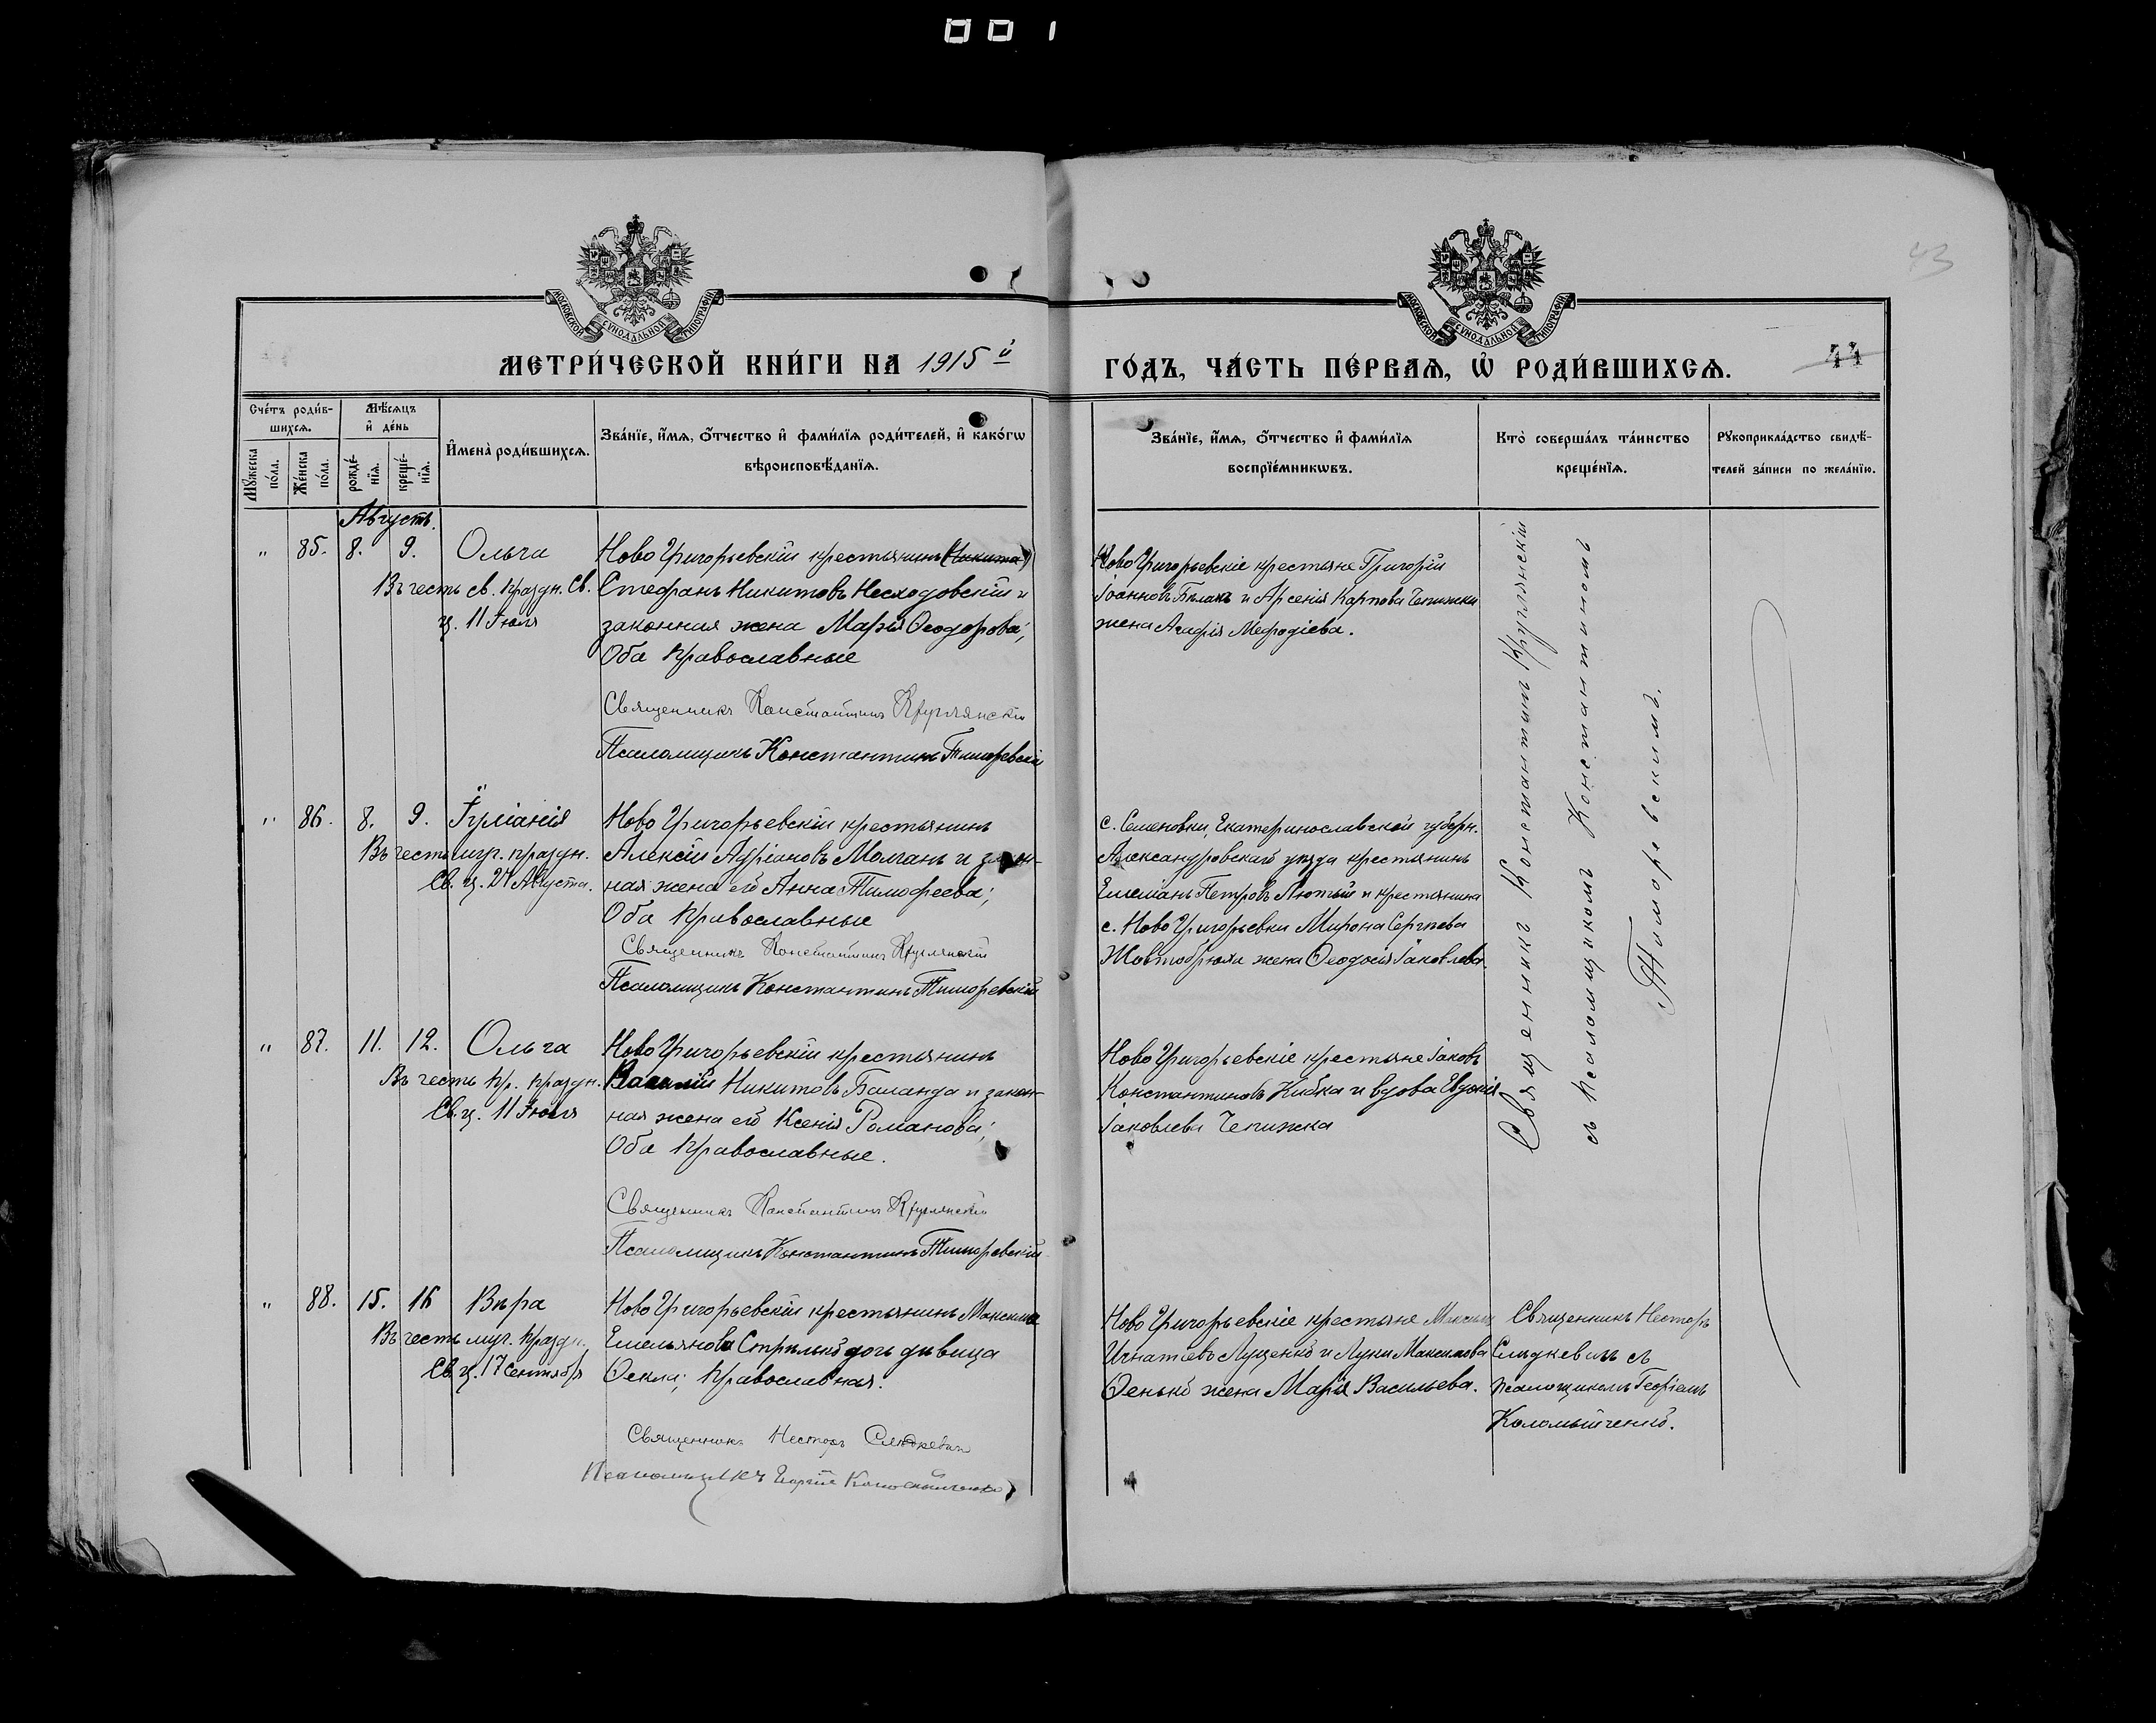 001
43
МОСКОВСКОЙ СѴНОДАЛЬНОЙ ТИПОГРАФІИ
МОСКОВСКОЙ СѴНОДАЛЬНОЙ ТИПОГРАФІИ
МЕТРИ́ЧЕСКОЙ КНИ́ГИ НА 1915й
ГО́ДЪ, ЧА́СТЬ ПЕ́РВАѦ, Ѡ҆ РОДИ́ВШИХСѦ.
44
Сче́тъ роди́в-
шихсѧ.
Мꙋ́жеска по́ла.
Же́нска по́ла.
Мѣ́сѧцъ и҆ де́нь
рожде́-нїѧ.
креще́-нїѧ.
И҆мена̀ роди́вшихсѧ.
Зва́нїе, и҆́мѧ, ѻ҆́тчество и҆ фами́лїѧ роди́телей, и҆ како́гѡ
вѣроисповѣ́данїѧ.
Зва́нїе, и҆́мѧ, ѻ҆́тчество и҆ фами́лїѧ
воспрїе́мникѡвъ.
Кто̀ соверша́лъ та́инство
креще́нїѧ.
Рꙋкоприкла́дство свидѣ́-
телей за́писи по жела́нїю.
Августъ.
" 85. 8. 9. Ольга
Въ честь св. праздн. Св.
ц. 11 Іюля
НовоГригорьевскій крестьянинъ (Никита)
Стефанъ Никитовъ Несходовскій и
законная жена Марія Ѳеодорова;
Оба православные
Священникъ Константинъ Круглянскій
Псаломщикъ Константинъ Тиморевскій
НовоГригорьевскіе крестьяне Григорій
Іоанновъ Бѣлакъ и Арсенія Карпова Чепижки
жена Агафія Меѳодіева.
Священникъ Константинъ Круглянскій
съ псаломщикомъ Константиномъ
Тиморевскимъ.
" 86. 8. 9. Іуліанія
Въ честь мун. праздн.
Св. ц. 24 Августа.
НовоГригорьевскій крестьянинъ
Алексій Адріановъ Молчанъ и закон-
ная жена его Анна Тимофеева;
Оба православные
Священникъ Константинъ Круглянскій
Псаломщикъ Константинъ Тиморевскій
с. Семеновки, Екатеринославской губерн.
Александровскаго уѣзда крестьянинъ
Емеліанъ Петровъ Лютый и крестьянина
с. НовоГригорьевки Мирона Сергѣева
Жовтобрюха жена Ѳеодосія Іаковлева.
" 87. 11. 12. Ольга
Въ честь пр. праздн.
Св. ц. 11 Іюля
НовоГригорьевскій крестьянинъ
Василій Никитовъ Баланда и закон-
ная жена его Ксенія Романова;
Оба православные.
Священникъ Константинъ Круглянскій
Псаломщикъ Константинъ Тиморевскій
НовоГригорьевскіе крестьяне Іаковъ
Константиновъ Кибка и вдова Евдокія
Іаковлева Чепижка
" 88. 15. 16 Вѣра
Въ честь муч. праздн.
Св. ц. 17 Сентября
НовоГригорьевскій крестьянинъ Максима
Емельянова Стрѣлько дочь дѣвица
Ѳекла; православная.
Священникъ Несторъ Слюдкевичъ
Псаломщикъ Георгій Коломыйченко
НовоГригорьевскіе крестьяне Максимъ
Игнатіевъ Луценко и Луки Максимова
Ѳенько жена Марія Васильева.
Священникъ Несторъ
Слюдкевичъ съ
псаломщикомъ Георгіемъ
Коломыйченко.